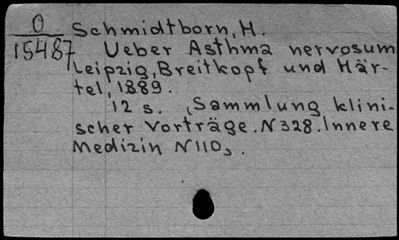 O
15487
Schmidtborn, H.
Ueber Asthma nervosum
Leipzig, Breitkopf und Här-
tel, 1889.
12 s. (Sammlung klini-
scher Vorträge. N 328. Innere
Medizin N 110).